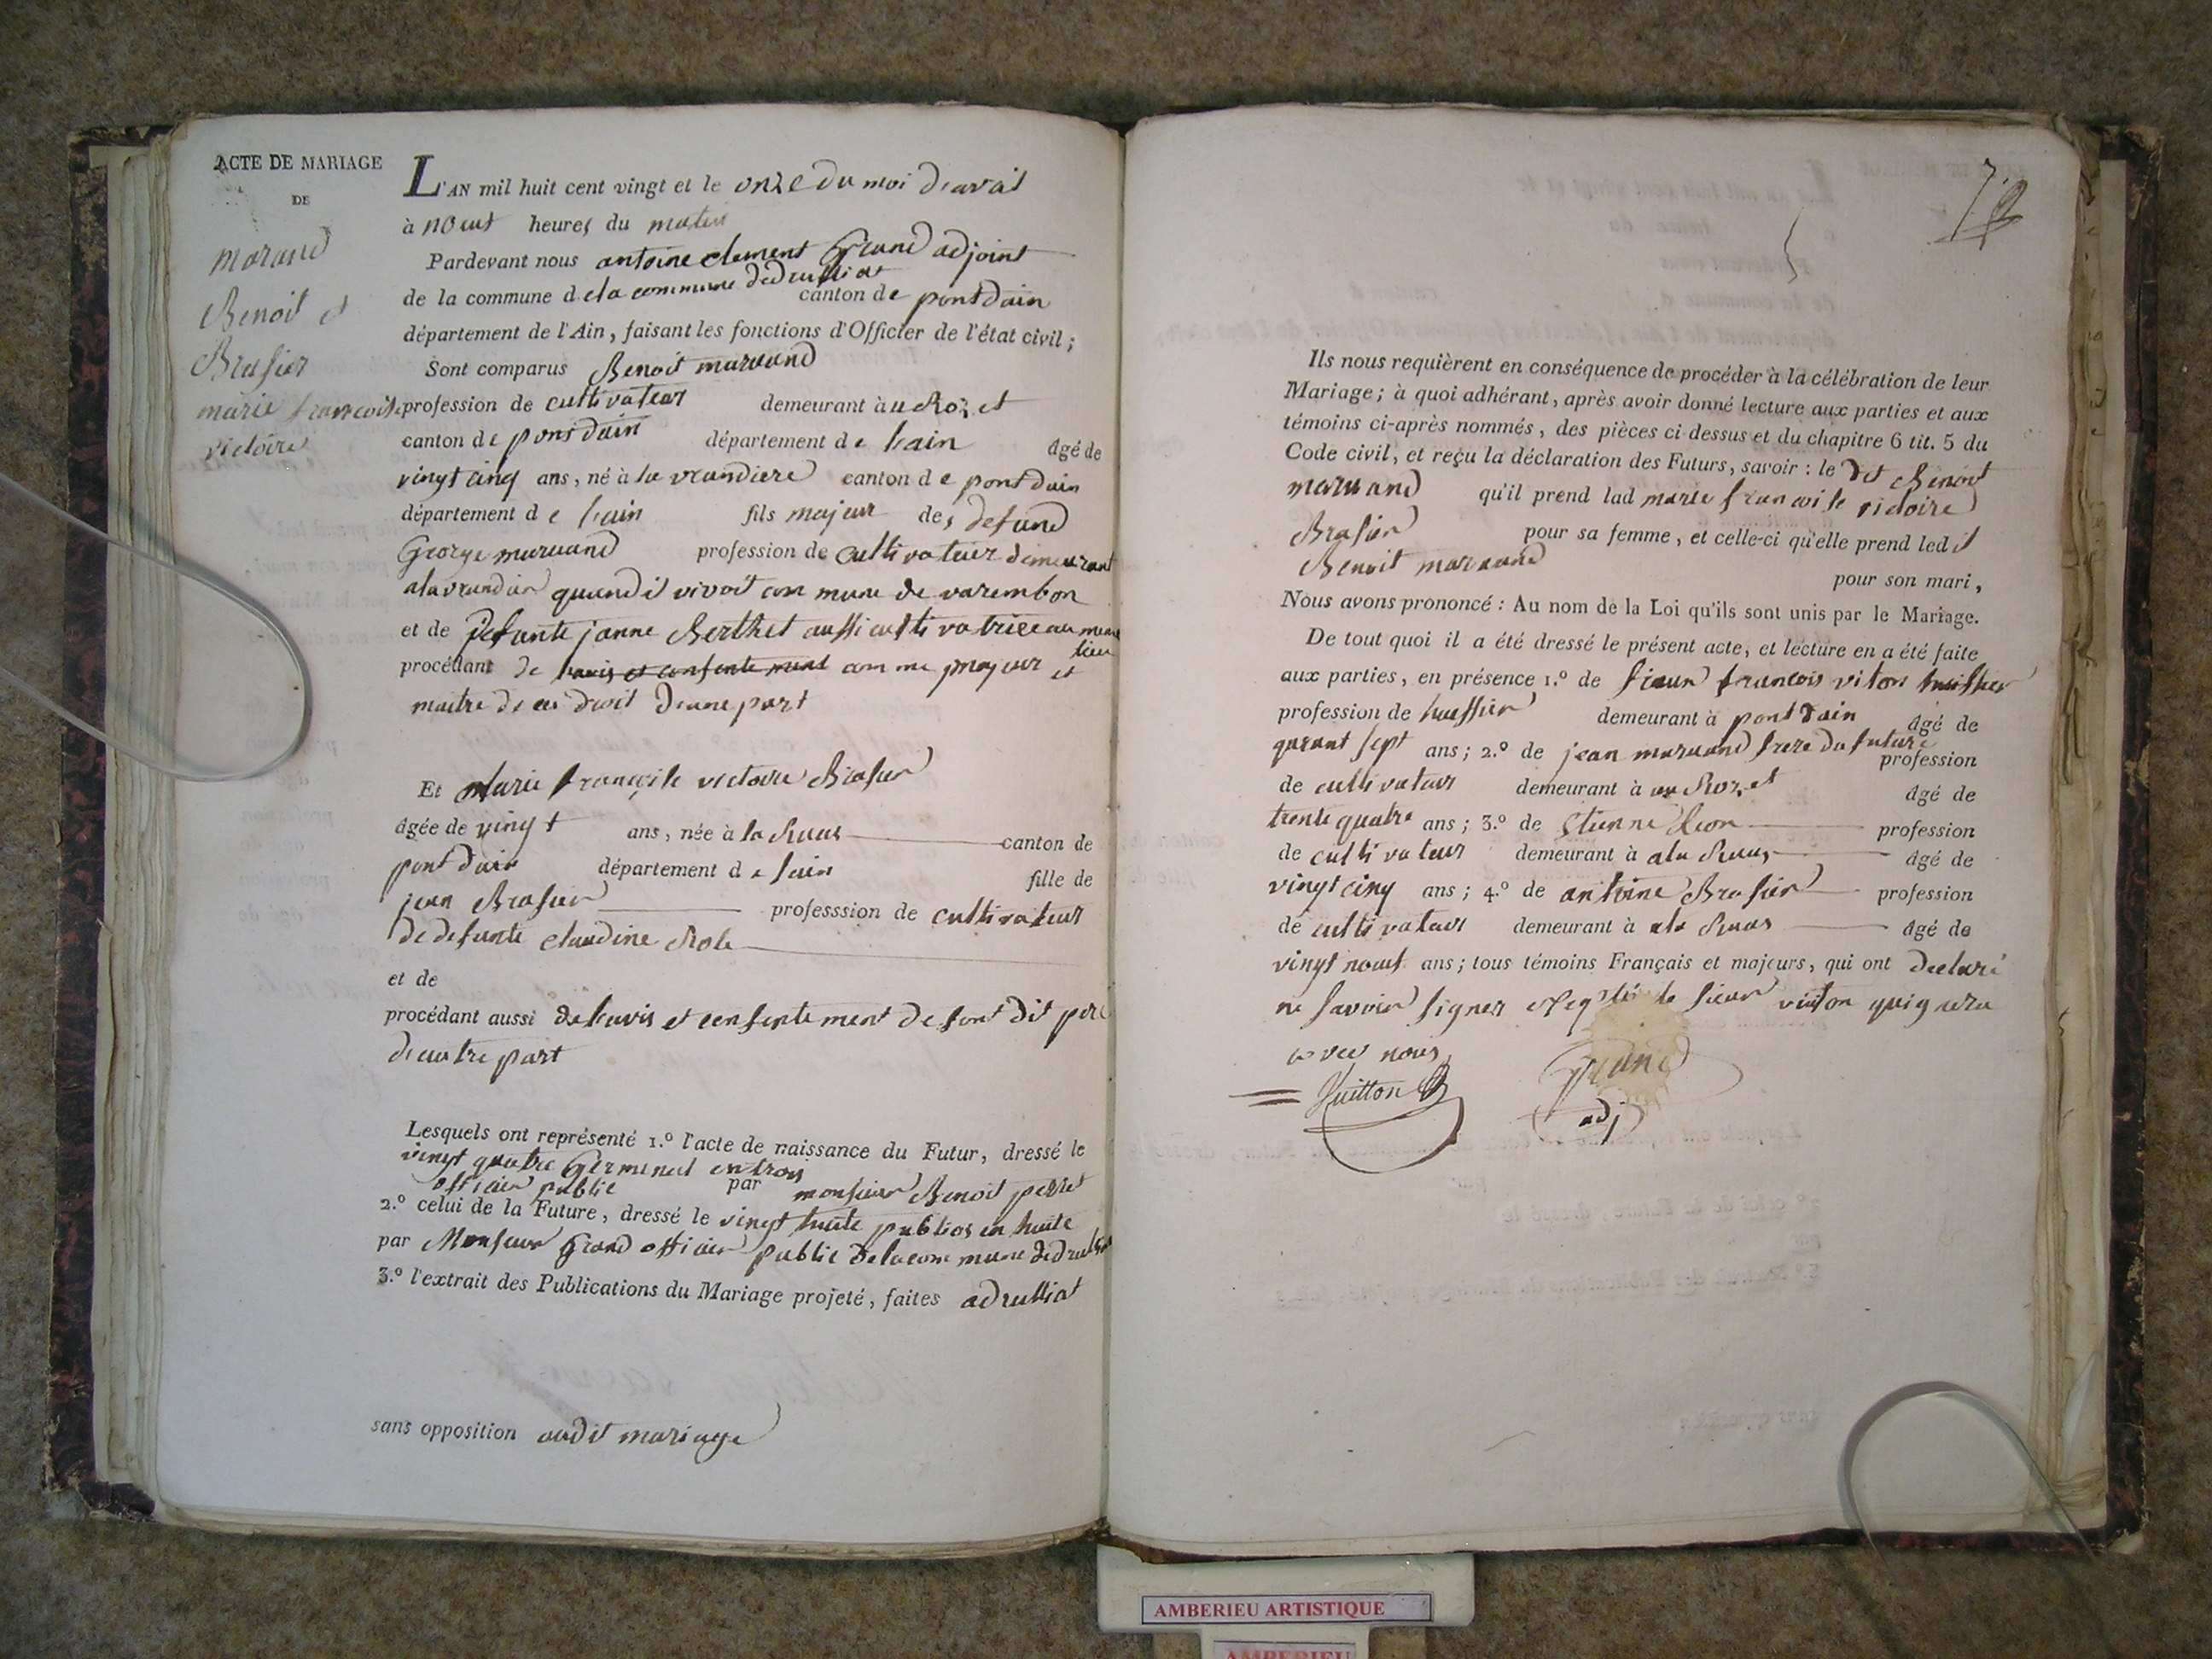 ACTE DE MARIAGE
DE
Marand
Benoit et
Brasier
marie francoise
victoire
L'AN mil huit cent vingt et le onze du moi d'avril
à nœuf heures du matin
Pardevant nous antoine clement Grand adjoint
de la commune d ela commune dedrulliat canton de pontdain
département de l'Ain, faisant les fonctions d'Officier de l'état civil ;
Sont comparus Benoit maruand
profession de cultivateur demeurant à u Rozet
canton de pontdain département de l'ain âgé de
vingt cinq ans, né à la vrandiere canton de pontdain
département de l'ain fils majeur de defund
George maruand profession de cultivateur demeurant
alavrandier quand il vivoit commune de varembon
et de defunte janne Berthet aussi cultivatrice au meme lieu
procédant de lavis et consentement comme majeur et
maitre de ces droit d'une part
Et Marie françoise victoire Brasier
âgée de vingt ans, née à la Ruas canton de
pontdain département de lain fille de
jean Brasier professsion de cultivateur
de defunte claudine Role
et de
procédant aussi de lavis et consentement de sont dit pere
deautre part
Lesquels ont représenté 1.º l'acte de naissance du Futur, dressé le
vingt quatre Germinal en trois
officier public par monsieur Benoit perret
2.º celui de la Future, dressé le vingt huite pluvios en huite
par Monsieur Grand officier public delacommune dedrulliat
3.º l'extrait des Publications du Mariage projeté, faites adrulliat
sans opposition audit mariage
Ils nous requièrent en conséquence de procéder à la célébration de leur
Mariage ; à quoi adhérant, après avoir donné lecture aux parties et aux
témoins ci-après nommés, des pièces ci dessus et du chapitre 6 tit. 5 du
Code civil, et reçu la déclaration des Futurs, savoir : le dit Benoit
maruand qu'il prend lad marie francoise victoire
Brasier pour sa femme, et celle-ci qu'elle prend ledit
Benoit maruand
pour son mari,
Nous avons prononcé : Au nom de la Loi qu'ils sont unis par le Mariage.
De tout quoi il a été dressé le présent acte, et lecture en a été faite
aux parties, en présence 1.º de sieur francois viton huissier
profession de huissier demeurant à pontdain âgé de
quarant sept ans ; 2.º de jean maruand frere du future profession
de cultivateur demeurant à au Rozet âgé de
trente quatre ans ; 3.º de Etienne Reon profession
de cultivateur demeurant à ala Ruas âgé de
vingt cinq ans ; 4.º de antoine Brasier profession
de cultivateur demeurant à ala Ruas âgé de
vingt nœuf ans ; tous témoins Français et majeurs, qui ont declaré
ne savoir signer le sieur viton
avec nous
Vuitton
Grand
adj
AMBERIEU ARTISTIQUE
AMBERIEU